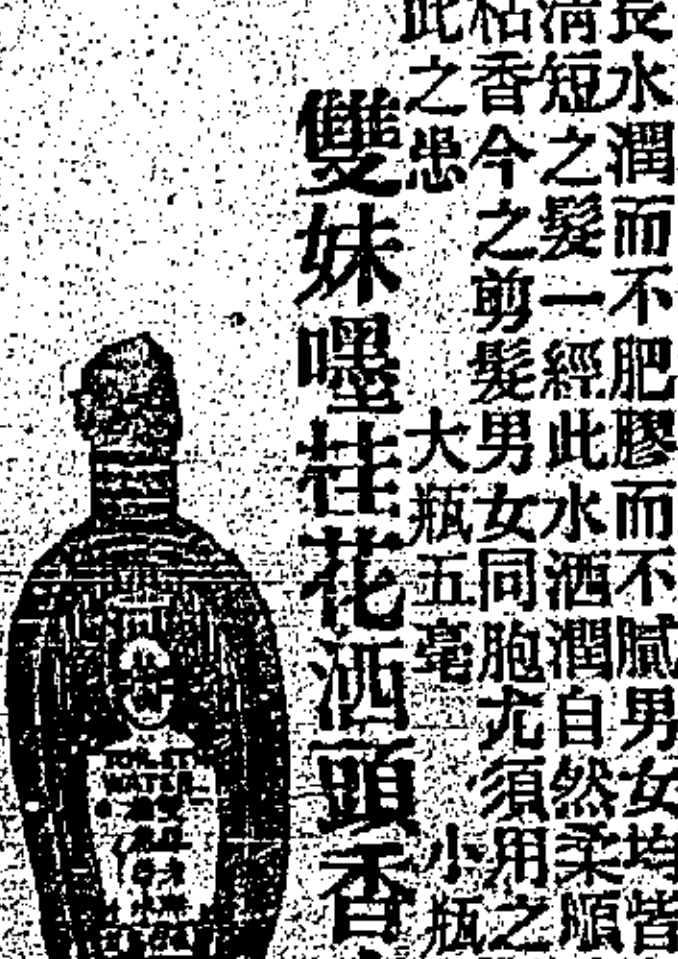 長水潤而不肥膠而不膩男女均皆
清短之髮一經此水洒潤自然柔順
枯香今之剪髮男女同胞尤須用之
此之患
大瓶五毫
小瓶
雙妹嚜桂花洒頭香
TOILET
WATER